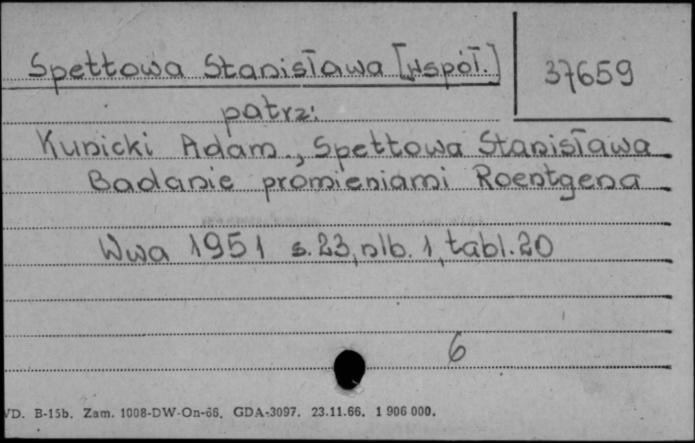 Spettowa Stanisława [współ.]
37659
patrz:
Kunicki Adam., Spettowa Stanisława
Badanie promieniami Roentgena
Wwa 1951 s.23,nlb.1,tabl.20
6
VD. B-15b. Zam. 1008-DW-On-66. GDA-3097. 23.11.66. 1 906 000.